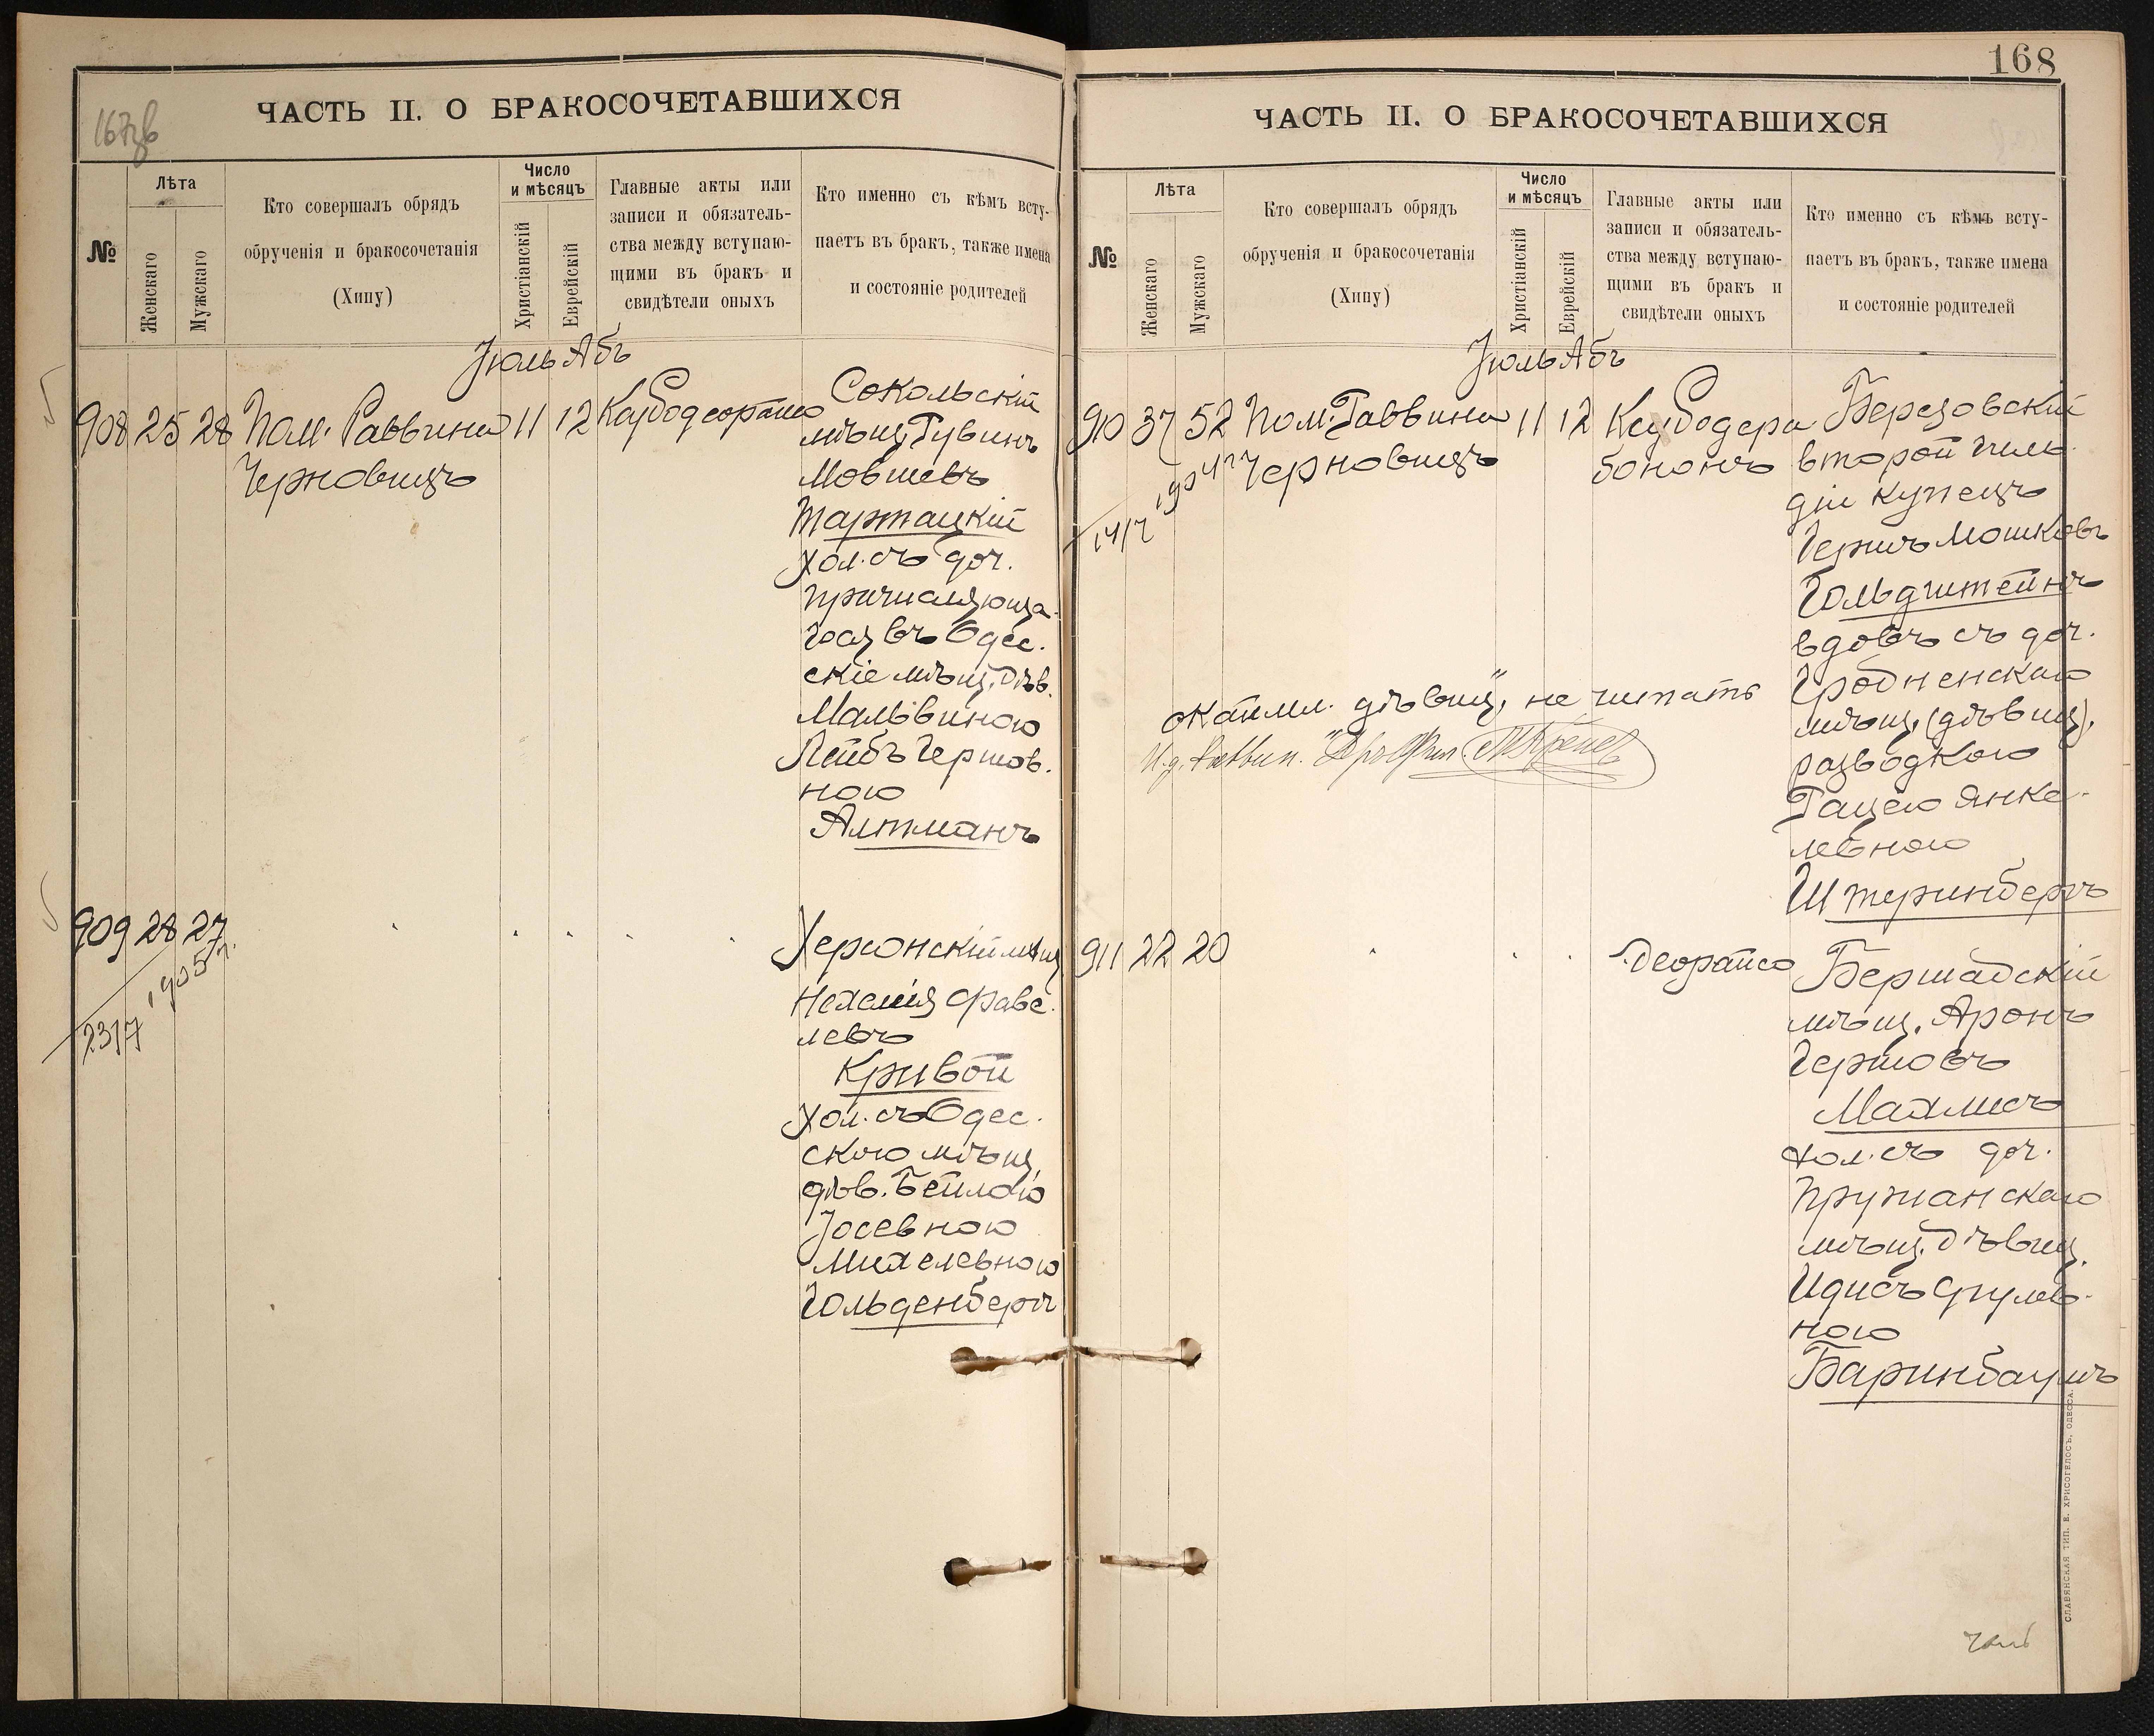 167зв
ЧАСТЬ II. О БРАКОСОЧЕТАВШИХСЯ
№
Лѣта
Женскаго
Мужскаго
Кто совершалъ обрядъ
обрученія и бракосочетанія
(Хипу)
Число
и мѣсяцъ
Христіанскій
Еврейскій
Главные акты или
записи и обязатель-
ства между вступаю-
щими въ бракъ и
свидѣтели оныхъ
Кто именно съ кѣмъ всту-
паетъ въ бракъ, также имена
и состояніе родителей
Іюль Абъ
908 25 28 Пом. Раввина 11 12
Черновицъ
Сокольскій
мѣщ. Рувинъ
Мовшевъ
Тартацкій
хол. съ доч.
причисляюща-
гося въ Одес.
скіе мѣщ. дѣв.
Мальвиною
Лейбъ Гершов.
ною
Алтманъ
909 28 27
1905 г.
23/7
Херсонскій мѣщ
Нехемія Сраве.
левъ
Кривой
хол. съ Одес.
скою мѣщ.
дѣв. Бейлою
Іосевною
Михелевною
Гольденбергъ
168
ЧАСТЬ II. О БРАКОСОЧЕТАВШИХСЯ
№
Лѣта
Женскаго
Мужскаго
Кто совершалъ обрядъ
обрученія и бракосочетанія
(Хипу)
Число
и мѣсяцъ
Христіанскій
Еврейскій
Главные акты или
записи и обязатель-
ства между вступаю-
щими въ бракъ и
свидѣтели оныхъ
Кто именно съ кѣмъ всту-
паетъ въ бракъ, также имена
и состояніе родителей
Іюль Абъ
910 37 52 Пом. Раввина 11 12
Черновицъ
14/7
Березовскій
второй гиль-
діи купецъ
Гершъ Мошковъ
Гольдштейнъ
вдовъ съ доч.
Гродненскаго
мѣщ. (дѣвиц),
разводкою
Рацею Янке-
левною
Штеринбергъ
дѣвиц", не читать
И. д. Раввин.
911 22 20
Бершадскій
мѣщ. Аронъ
Гершовъ
Махлисъ
хол. съ доч.
Пружанскаго
мѣщ. дѣвиц.
Идисъ Срулев-
ною
Баринбаумъ
СЛАВЯНСКАЯ ТИП. Е. ХРИСОГЕЛОСЪ, ОДЕССА.